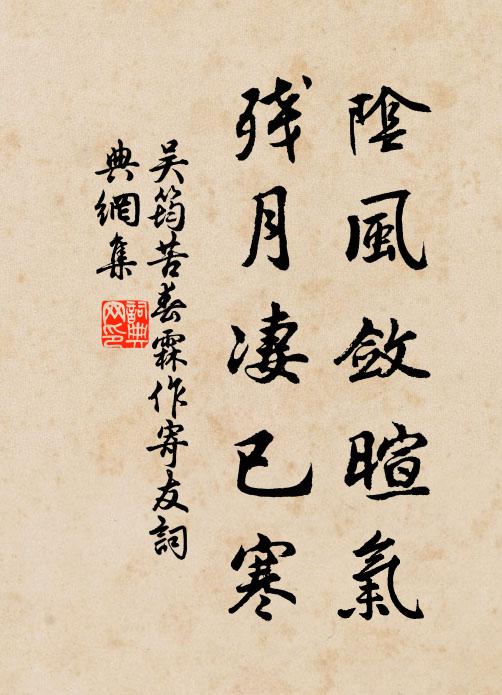 陰風斂暄氣
殘月淒已寒
吴筠苦春霖作寄友詞
典網集
詞典网印